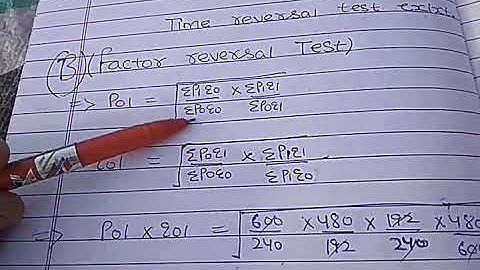 Time reversal test exist.
B) (Factor reversal Test)
⇒ P01 = √(ΣP1q0/ΣP0q0 × ΣP1q1/ΣP0q1)
q01 = √(ΣP0q1/ΣP0q0 × ΣP1q1/ΣP1q0)
⇒ P01 × q01 = √(600/240 × 480/192 × 192/240 × 480/600